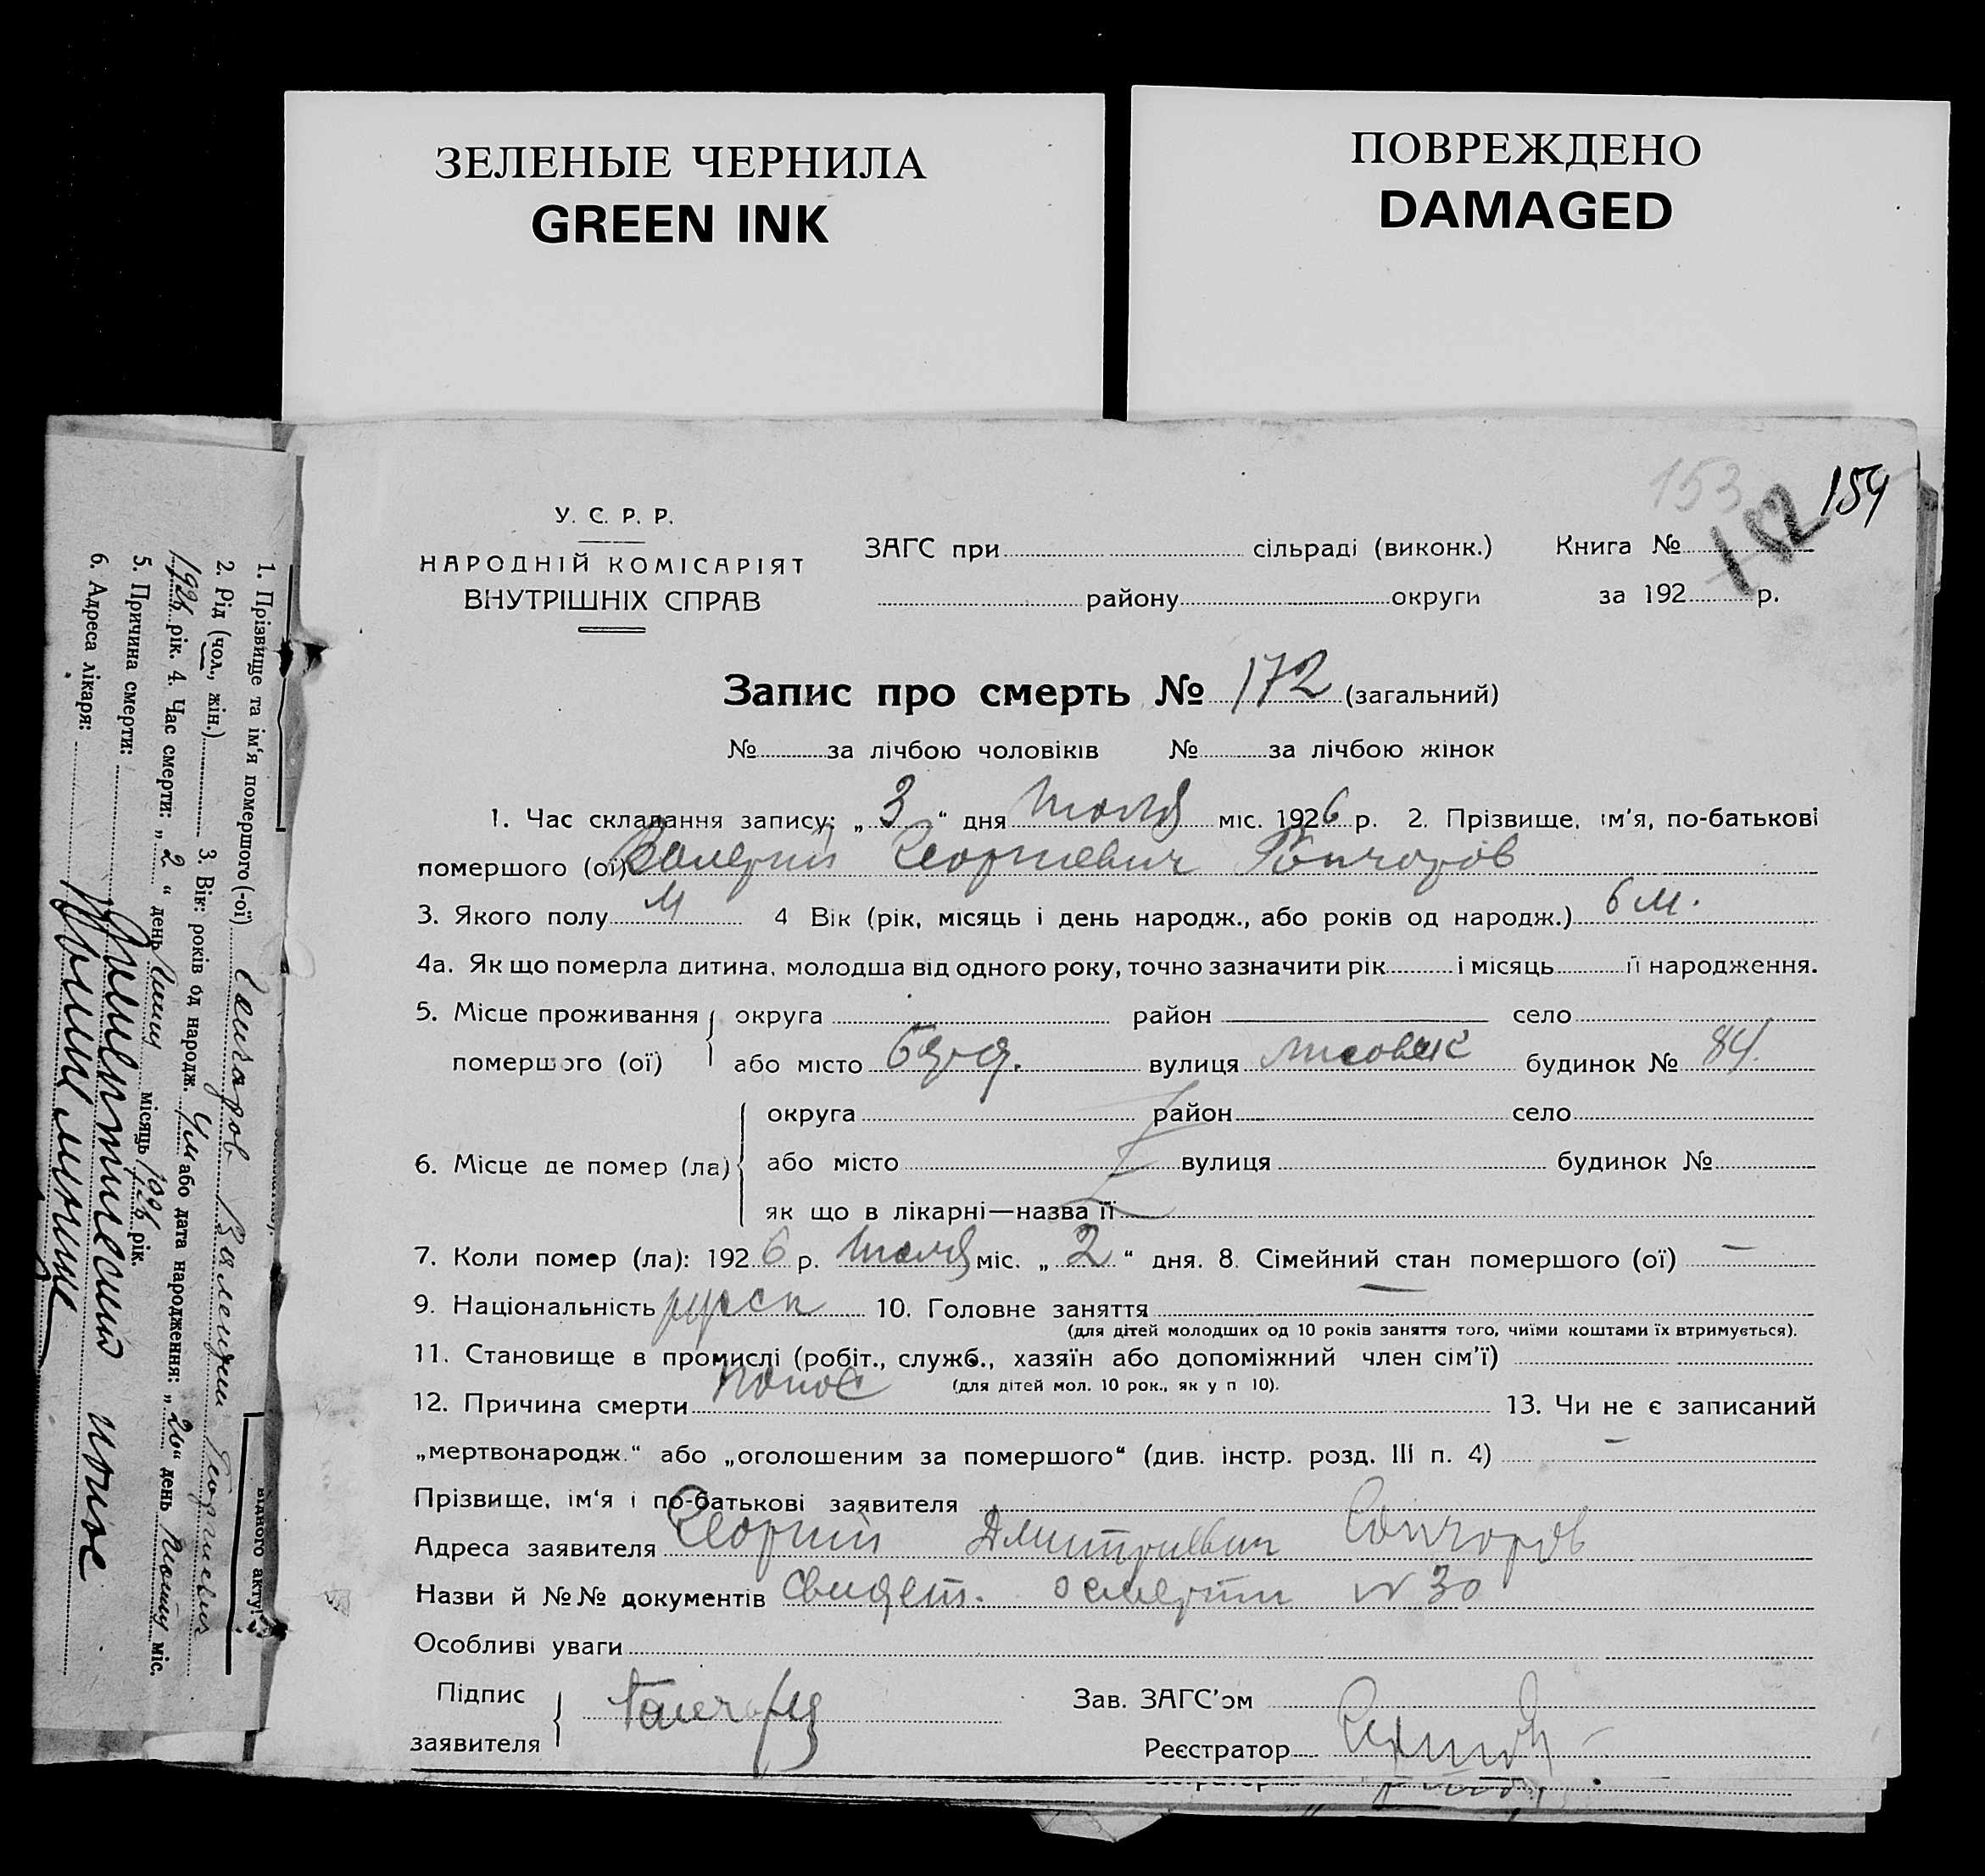 ЗЕЛЕНЫЕ ЧЕРНИЛА
GREEN INK
ПОВРЕЖДЕНО
DAMAGED
153 182 154
У. С. Р. Р.
НАРОДНІЙ КОМІСАРІЯТ
ВНУТРІШНІХ СПРАВ
ЗАГС при сільраді (виконк.) Книга №
району округи за 192 р.
Запис про смерть № 172 (загальний)
№ за лічбою чоловіків № за лічбою жінок
1. Час складання запису: „ 3 “ дня Июля міс. 1926 р. 2. Прізвище, ім'я, по-батькові
помершого (ої) Валерий Георгиевич Гончаров
3. Якого полу М 4 Вік (рік, місяць і день народж., або років од народж.) 6 м.
4а. Як що померла дитина, молодша від одного року, точно зазначити рік і місяць її народження.
5. Місце проживання округа район село
помершого (ої) або місто вулиця будинок № 84
6. Місце де помер (ла) округа район село
або місто вулиця будинок №
як що в лікарні—назва її
7. Коли помер (ла): 1926 р. Июля міс. „ 2 “ дня. 8. Сімейний стан помершого (ої) —
9. Національність русск 10. Головне заняття —
(для дітей молодших од 10 років заняття того, чиїми коштами їх втримується).
11. Становище в промислі (робіт., служб., хазяїн або допоміжний член сім'ї)
(для дітей мол. 10 рок., як у п 10).
12. Причина смерти понос 13. Чи не є записаний
„мертвонародж.“ або „оголошеним за помершого“ (див. інстр. розд. III п. 4) —
Прізвище, ім'я і по-батькові заявителя
Адреса заявителя Георгий Дмитриевич Гончаров
Назви й №№ документів свидет. о смерти № 30
Особливі уваги
Підпис
заявителя
Зав. ЗАГС'ом
Реєстратор
1. Прізвище та ім'я помершого (-ої) Гончаров Валерий Георгиевич
2. Рід (чол., жін.) 3. Вік: років од народж. або дата народження: „ 20 “ день міс.
1926 рік. 4. Час смерти: „ 2 “ день місяць 1926 рік.
5. Причина смерти: понос
6. Адреса лікаря:
відного акту!